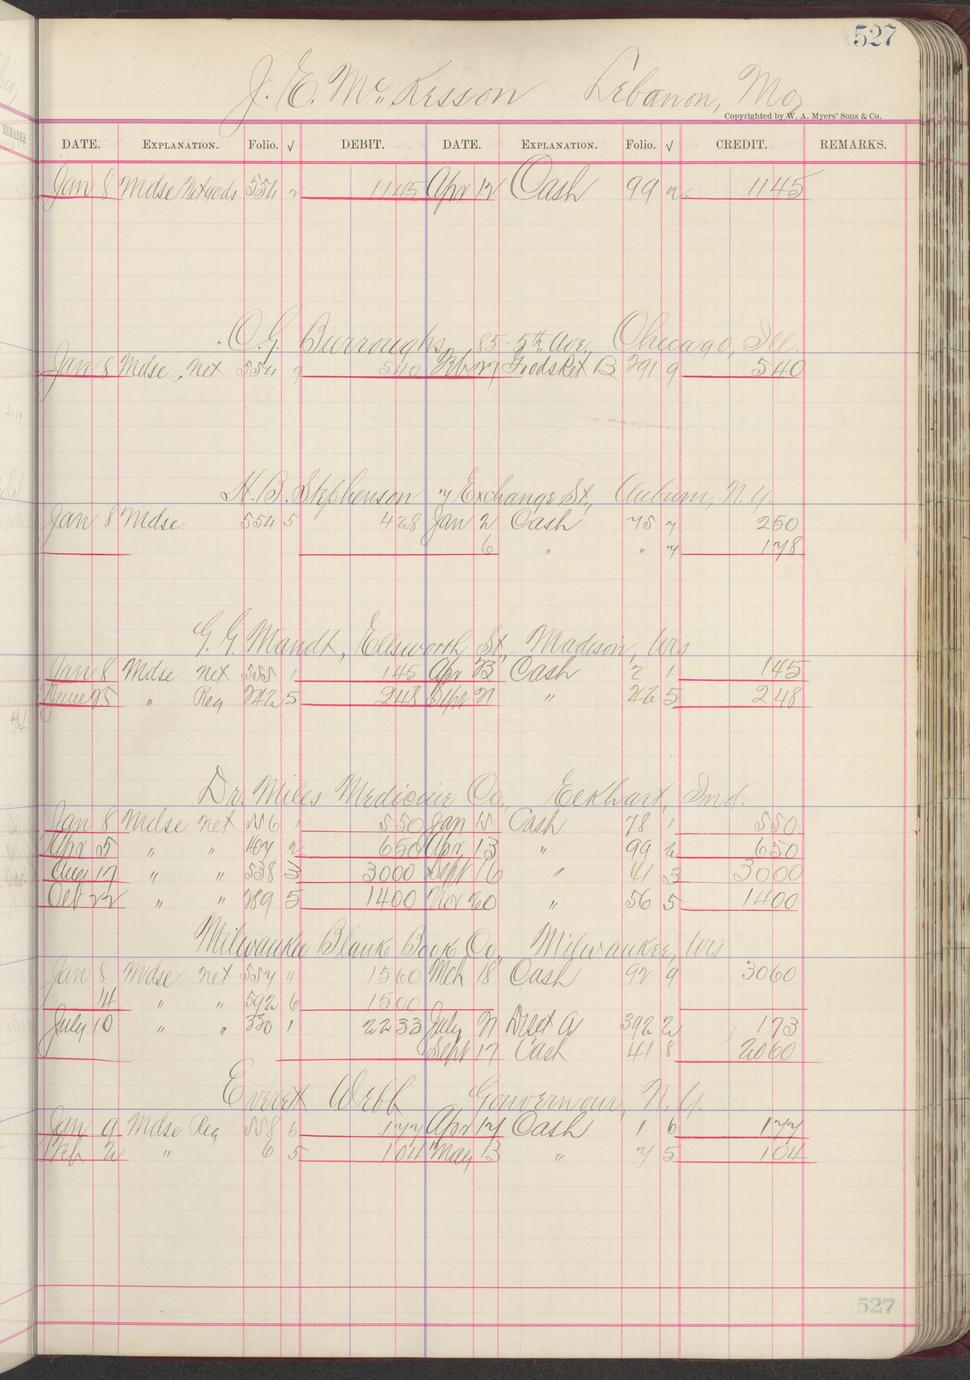 527
J. E. McKesson Lebanon, Mo,
Copyrighted by W. A. Myers' Sons & Co.
DATE. EXPLANATION. Folio. √ DEBIT. DATE. EXPLANATION. Folio. √ CREDIT. REMARKS.
Jan 8 Mdse Net goods 554 2 1145 Apr 12 Cash 99 2 1145
O. G. Burroughs, 85 - 5th Ave, Chicago, Ill.
Jan 8 Mdse net 554 9 540 Feb 27 B 291 9 540
H. B. Stephenson 7 Exchange St, Auburn, N.Y.
Jan 8 Mdse 554 5 428 Jan 2 Cash 75 7 250
6 " " 7 178
G. G. Mandt, Ellsworth St, Madison, Wis
Jan 8 Mdse net 555 1 145 Apr 23 Cash 2 1 145
June 25 " Reg 242 5 248 Sept 21 " 5 248
Dr. Miles Medicine Co, Elkhart, Ind.
Jan 8 Mdse net 556 1 550 Jan 15 Cash 78 1 550
Apr 5 " " 407 2 650 Apr 13 " 99 2 650
Aug 17 " " 538 3 3000 Sept 16 " 41 3 3000
Oct 22 " " 289 5 1400 Nov 20 " 56 5 1400
Milwaukee Blank Book Co, Milwaukee, Wis
Jan 8 Mdse net 557 4 1560 Mch 18 Cash 92 9 3060
14 " " 592 6 1500
July 10 " " 330 1 2233 July 21 392 2 173
Sept 17 Cash 41 8 2060
Everett Webb Gouverneur, N.Y.
Jan 9 Mdse Reg 558 6 177 Apr 14 Cash 1 6 177
Feb 2 " 6 5 104 May 13 " 7 5 104
527